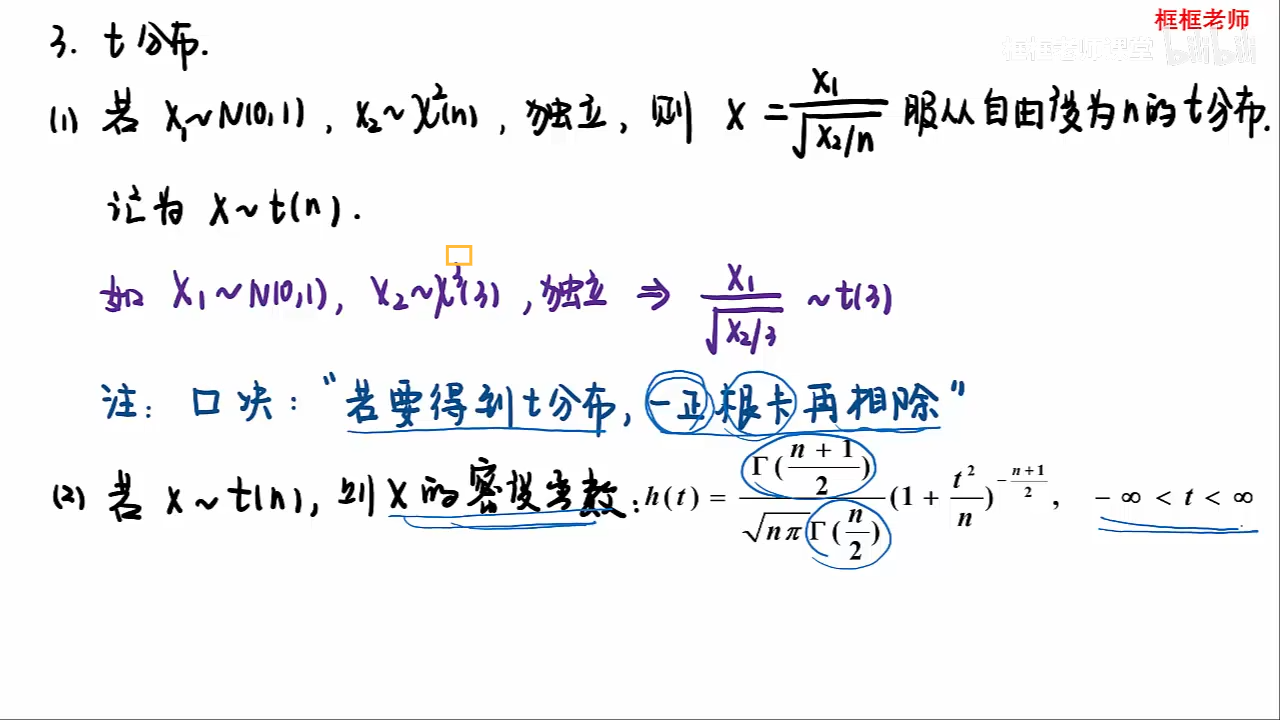 框框老师
框框老师课堂 bilibili
3. t分布.
(1) 若 X₁~N(0,1), X₂~χ²(n), 独立, 则 X = X₁/√(X₂/n) 服从自由度为n的t分布.
记为 X~t(n).
如 X₁~N(0,1), X₂~χ²(3), 独立 ⇒ X₁/√(X₂/3) ~t(3)
注: 口诀: "若要得到t分布, 一正根卡再相除"
(2) 若 X~t(n), 则X的密度函数: h(t) = Γ((n+1)/2)/(√(nπ) Γ(n/2)) (1 + t²/n)^(-(n+1)/2), -∞ < t < ∞